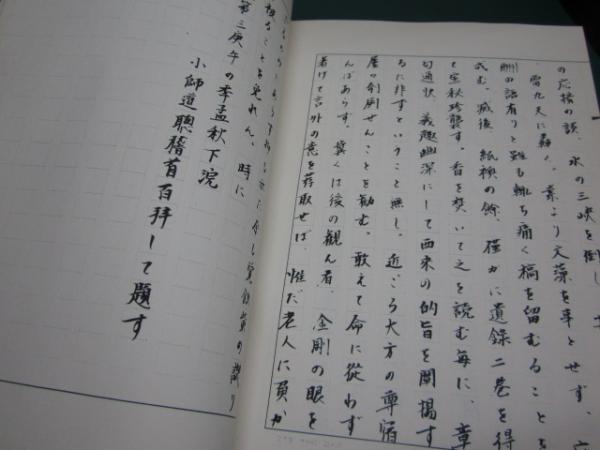 の応接の談、水の三峡を倒し
雷九天に轟く。素より文藻を事とせず、
刪の語有りと雖も輒ち痛く稿を留むることを
戒む。滅後、紙襖の餘、僅かに遺録二巻を得
て宝秋珍襲す。香を焚いて之を読む毎に、章
句通訳、義趣幽深にして西来の的旨を闡揚す
るに非ずということ無し。近ごろ大方の尊宿
屡の剞劂せんことを勧む。敢えて命に従わず
んばあらず。冀くは後の観ん者、金剛の眼を
着けて言外の意を荐取せば、惟だ老人に負か
ことを免れん。時に
第三庚午の季孟秋下浣
小師道聰稽首百拝して題す